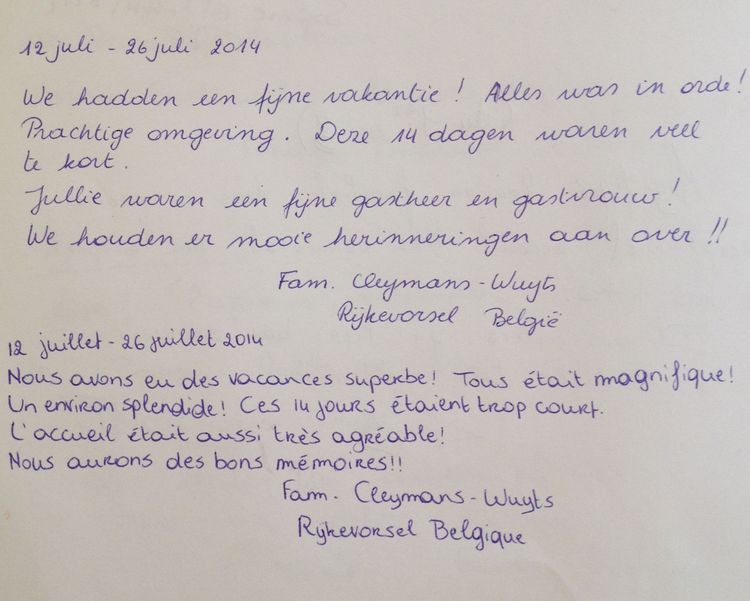 12 juli - 26 juli 2014
We hadden een fijne vakantie! Alles was in orde!
Prachtige omgeving. Deze 14 dagen waren veel
te kort.
Jullie waren een fijne gastheer en gastvrouw!
We houden er mooie herinneringen aan over !!
Fam. Cleymans-Wuyts
Rijkevorsel België
12 juillet - 26 juillet 2014
Nous avons eu des vacances superbe! Tous était magnifique!
Un environ splendide! Ces 14 jours étaient trop court.
L'accueil était aussi très agréable!
Nous aurons des bons mémoires!!
Fam. Cleymans-Wuyts
Rijkevorsel Belgique